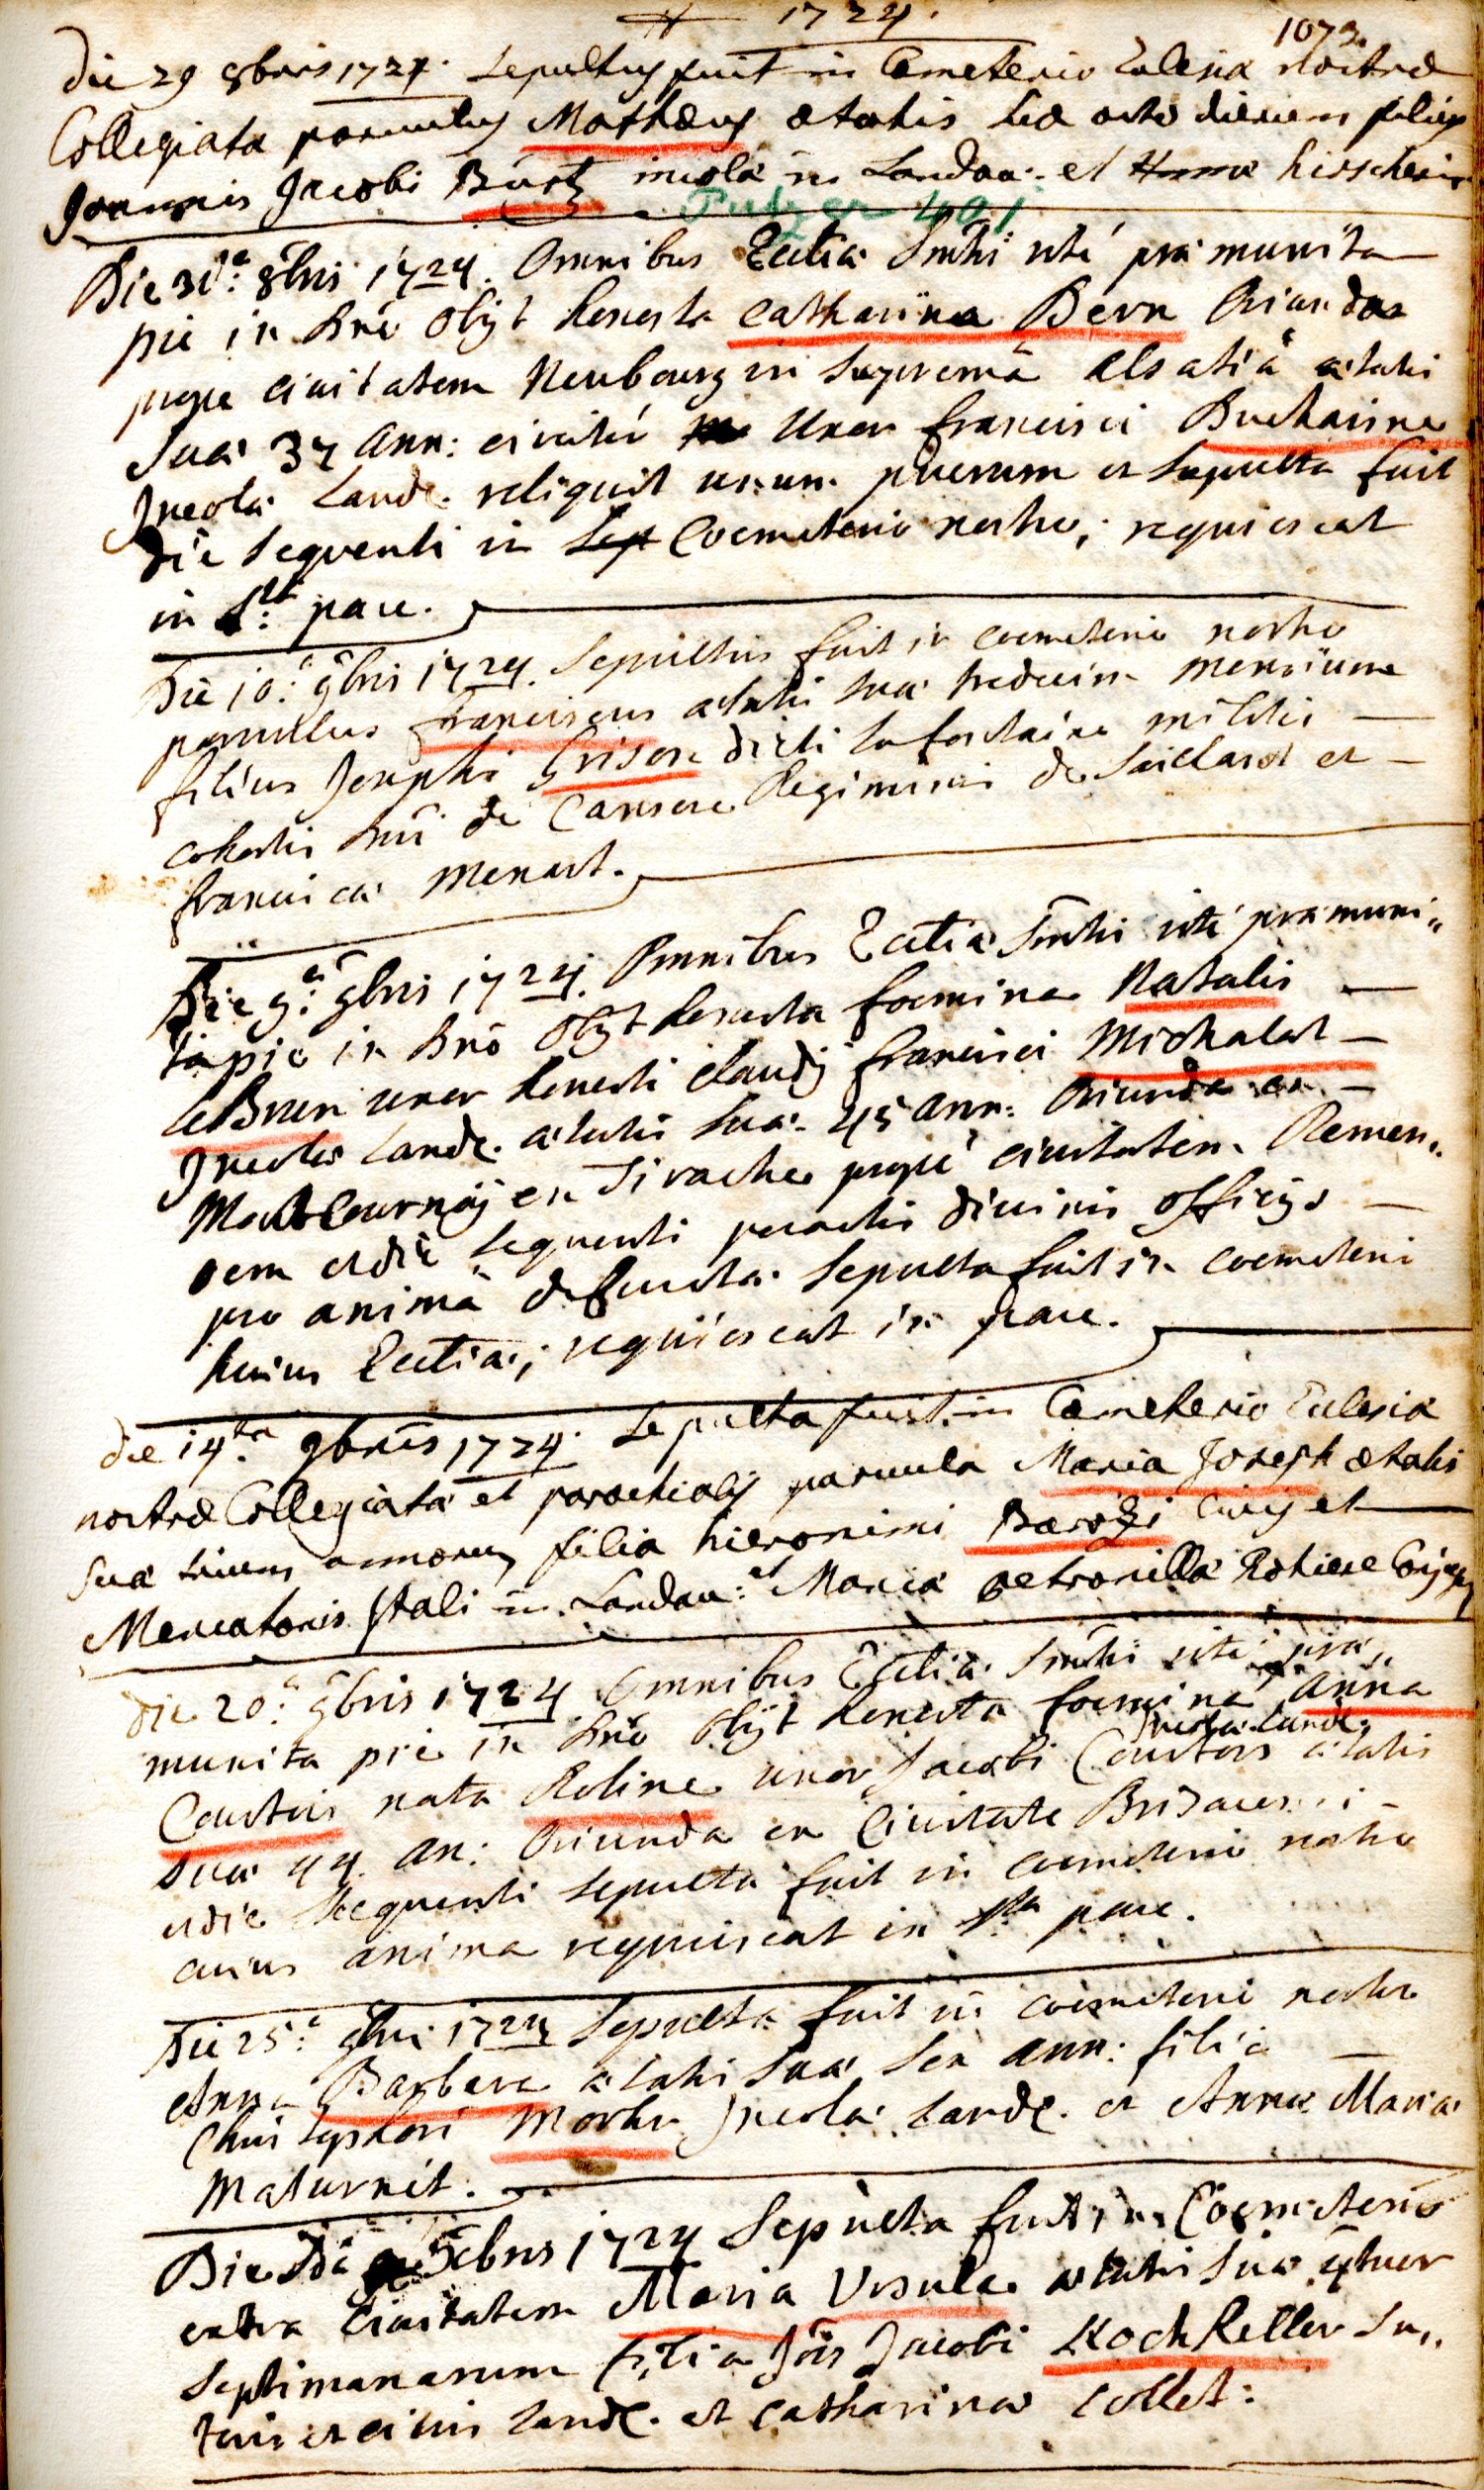 1724.
1073.
die 29 8bris 1724. Sepultus fuit in Cemeterio Eclesiæ nostræ
Collegiatæ parvulus Mathæus ætatis suæ octo dierum filius
Joannis Jacobi Burtz incolæ in Landau. et Annæ hirscherin
Putzer 401
Die 31.a 8bris 1724. Omnibus Eccliæ Smtis rité præmunita
pié in Dno obijt honesta Catharina Bern Oriunda
prope civitatem Neubourg in Supremâ Alsatiâ ætatis
suæ 37 Ann: circiter Uxor francisci Buchaisne
Incolæ Landæ. reliquit unum puerum et sepulta fuit
die sequenti in Coemeterio nostro; requiescat
in S.ta pace.
Die 10.a 9bris 1724. Sepultus fuit in coemeterio nostro
parvulus franciscus ætatis suæ tredecim mensium
filius Josephi Grison dicti la fontaine militis
cohortis Dni de Cansere Regiminis de Saillard et
franciscæ Menart.
Die 9.a 9bris 1724. Omnibus Eccliæ Smtis rité præmuni„
ta pié in Dno Obijt honesta foemina Natalis
le Brun uxor honesti Claudij francisci Michalet
Incolæ Landæ. ætatis suæ. 45 Ann: Oriunda ex
Montcurnaÿ en Tirache propé civitatem Remen„
sem et die sequenti peractis divinis officijs
pro animâ defunctæ sepulta fuit in coemeterio
huius Eccliæ; requiescat in pace.
die 14.ta 9bris 1724. Sepulta fuit in Cemeterio Eclesiæ
nostræ Collegiatæ et parochialis parvula Maria Joseph ætatis
suæ trium annorum filia hieronimi Barozzi civis et
Mercatoris Itali in Landau: et Mariæ petronillæ Rotiere Conjugum
die 20.a 9bris 1724 Omnibus Eccliæ Smtis rité præ„
munita pié in Dno obijt honesta foemina Anna
Incolæ Landæ.
Courtois nata Roline uxor Jacobi Courtois ætatis
suæ 44. an: Oriunda ex Civitate Brisacensi
et die sequenti sepulta fuit in coemeterio nostro
cuius anima requiescat in S.ta pace.
Die 25.a 9bris 1724 Sepulta fuit in coemeterio nostro
Anna Barbara ætatis suæ sex ann: filia
Christophori Morhr Incolæ Landæ. et Annæ Mariæ
Maturnit.
Die 5.a Xbris 1724 Sepulta fuit in Coemeterio
extra Civitatem Maria Ursula ætatis suæ quatuor
septimanarum filia Jois Jacobi Kochkeller Su„
toris et civis Landæ. et Catharinæ Collet: